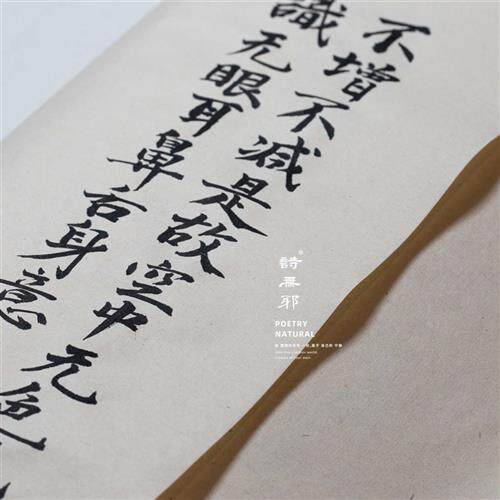 不增不减是故空中无色
識无眼耳鼻舌身意
詩無邪
POETRY
NATURAL